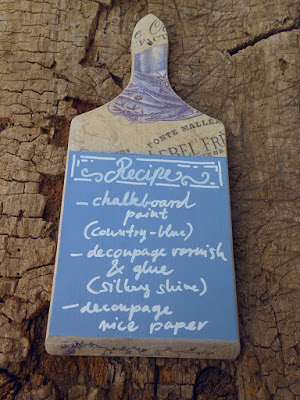 FONTE MALLE
Recipe
– chalkboard
paint
(country-blue)
– decoupage varnish
& glue
(silky shine)
– decoupage
rice paper